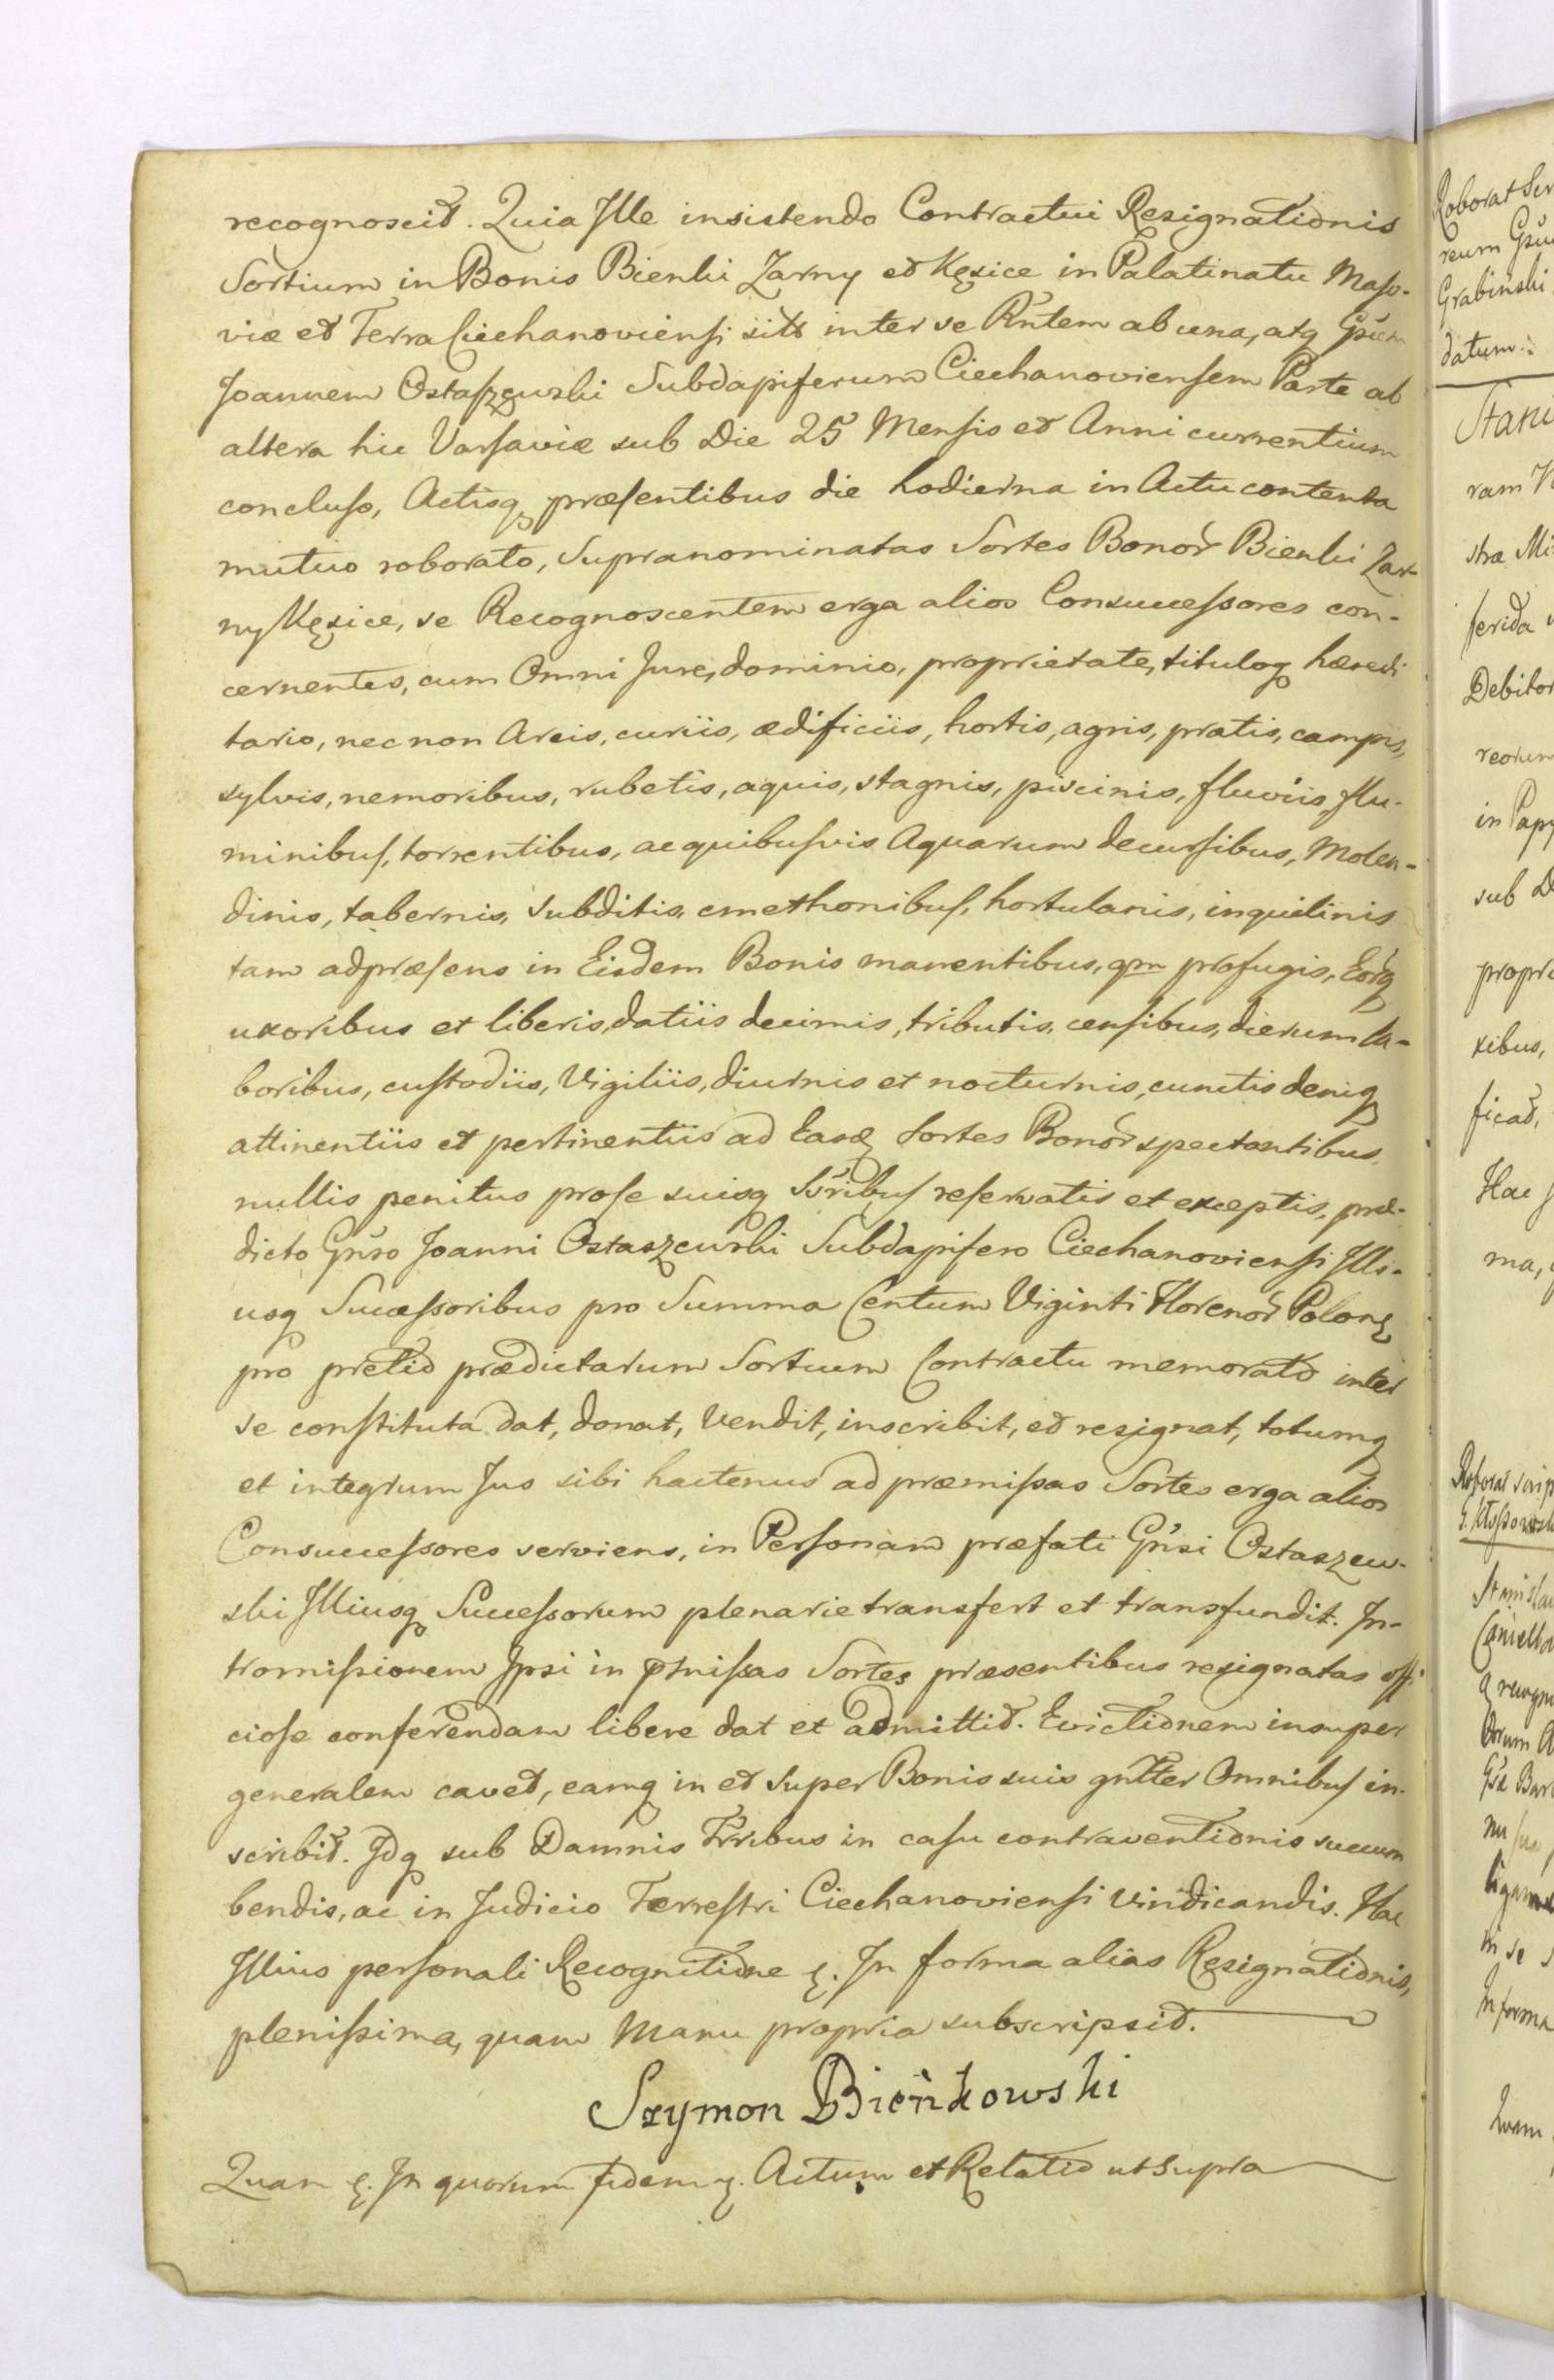 recognoscit. Quia Ille insistendo Contractui Resignationis
Sortium in Bonis Bieńki Zarny et Kęsice in Palatinatu Maso-
viæ et Terra Ciechanoviensi sitis inter se Rntem ab una, atq Gsum
Joannem Ostaszewski Subdapiferum Ciechanoviensem Parte ab
altera hic Varsaviæ sub Die 25 Mensis et Anni currentium
concluso, Actisq præsentibus die hodierna in Actu contenta
mutuo roborato, Supranominatas Sortes Bonor Bieńki Zar-
ny Kęsice, se Recognoscentem erga alios Consuccessores con-
cernentes, cum Omni Jure, dominio, proprietate, tituloq hæredi
tario, nec non Areis, curiis, ædificiis, hortis, agris, pratis, campis,
sylvis, nemoribus, rubetis, aquis, stagnis, piscinis, fluviis, flu-
minibus, torrentibus, ac quibusvis Aquarum decursibus, Molen-
dinis, tabernis, subditis, cmethonibus, hortulanis, inquilinis
tam ad præsens in Eisdem Bonis manentibus, qm profugis, Eorq
uxoribus et liberis, datiis decimis, tributis, censibus, dierum la-
boribus, custodiis, Vigiliis, diurnis et nocturnis, cunctis deniq
attinentiis et pertinentiis ad Easd Sortes Bonor spectantibus
nullis penitus pro se suisq Ssribus reservatis et exceptis, præ-
dicto Gnso Joanni Ostaszewski Subdapifero Ciechanoviensi Illi-
usq Successoribus pro Summa Centum Viginti Florenor Polon
pro pretio prædictarum Sortium Contractu memorato inter
se constituta dat, donat, Vendit, inscribit, et resignat, totumq
et integrum Jus sibi hactenus ad præmissas Sortes erga alios
Consuccessores serviens, in Personam præfati Gnsi Ostaszew-
ski Illiusq Successorum plenarie transfert et transfundit. In-
tromissionem Ipsi in pmissas Sortes præsentibus resignatas offi-
ciose conferendam libere dat et admittit. Evictionem insuper
generalem cavet, eamq in et super Bonis suis gnlter Omnibus in-
scribit. Idq sub Damnis Trribus in casu contraventionis succum
bendis, ac in Judicio Terrestri Ciechanoviensi vindicandis. Hac
Illius personali Recognitione &. In forma alias Resignationis,
plenissima, quam Manu propria subscripsit.
Szymon Bieńkowski
Quam &. In quorum fidem &. Actum et Relatio ut Supra
Grabinski
datum.
Stani
ram
stra Mi
ferida
Debitor
reorum
in Papy
sub D
propri
xibus,
ficat,
Hac
ma,
In forma